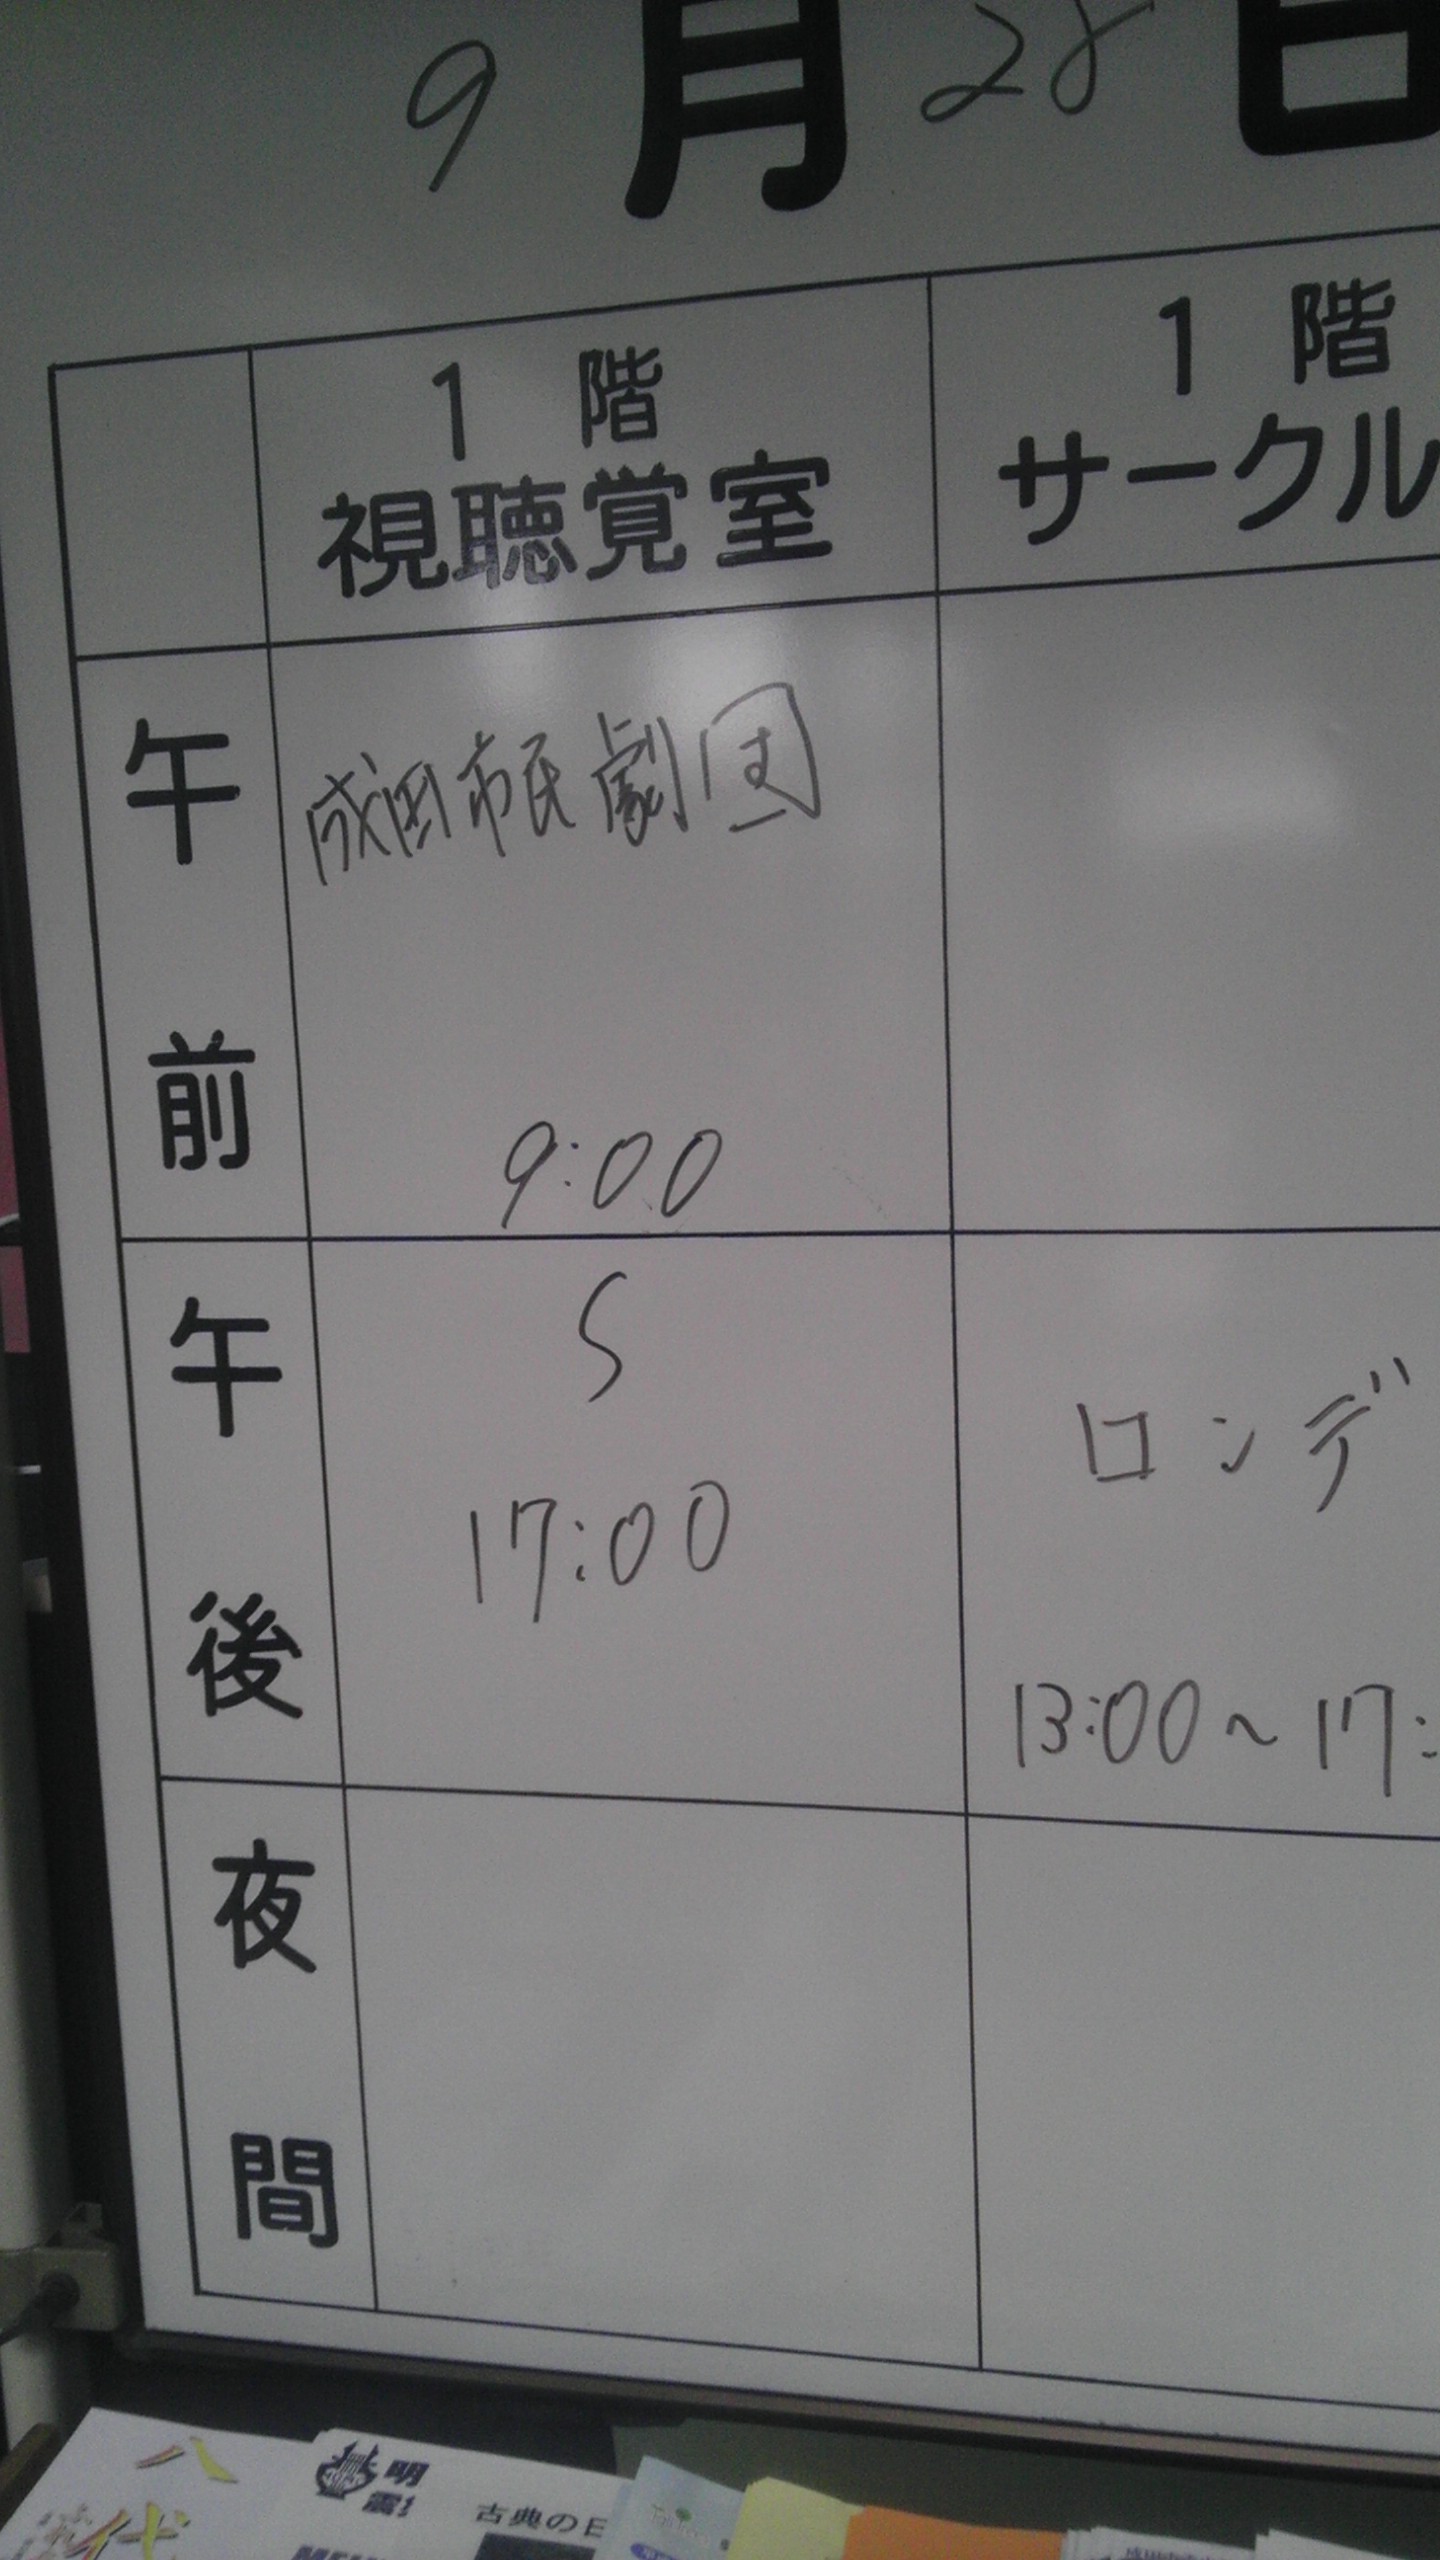 9月28日
1階
視聴覚室
1階
サークル
午前
成田市民劇団
9:00
午後
〜
17:00
ロンデ
13:00～17:
夜間
八
代
明
古典の日